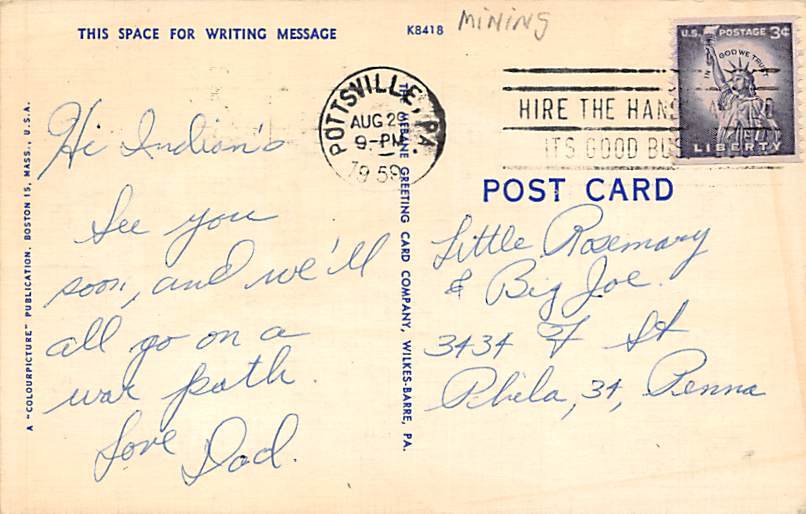 THIS SPACE FOR WRITING MESSAGE
K8418
MINING
U.S. POSTAGE 3¢
IN GOD WE TRUST
LIBERTY
POTTSVILLE, PA.
AUG 28
9-PM
1959
HIRE THE HAN
ITS GOOD BUS
POST CARD
Hi Indian's
See you
soon, and we'll
all go on a
war path.
Love Dad.
Little Rosemary
& Big Joe.
3434 F St
Phila, 34, Penna
A "COLOURPICTURE" PUBLICATION, BOSTON 15, MASS., U.S.A.
THE MEBANE GREETING CARD COMPANY, WILKES-BARRE, PA.